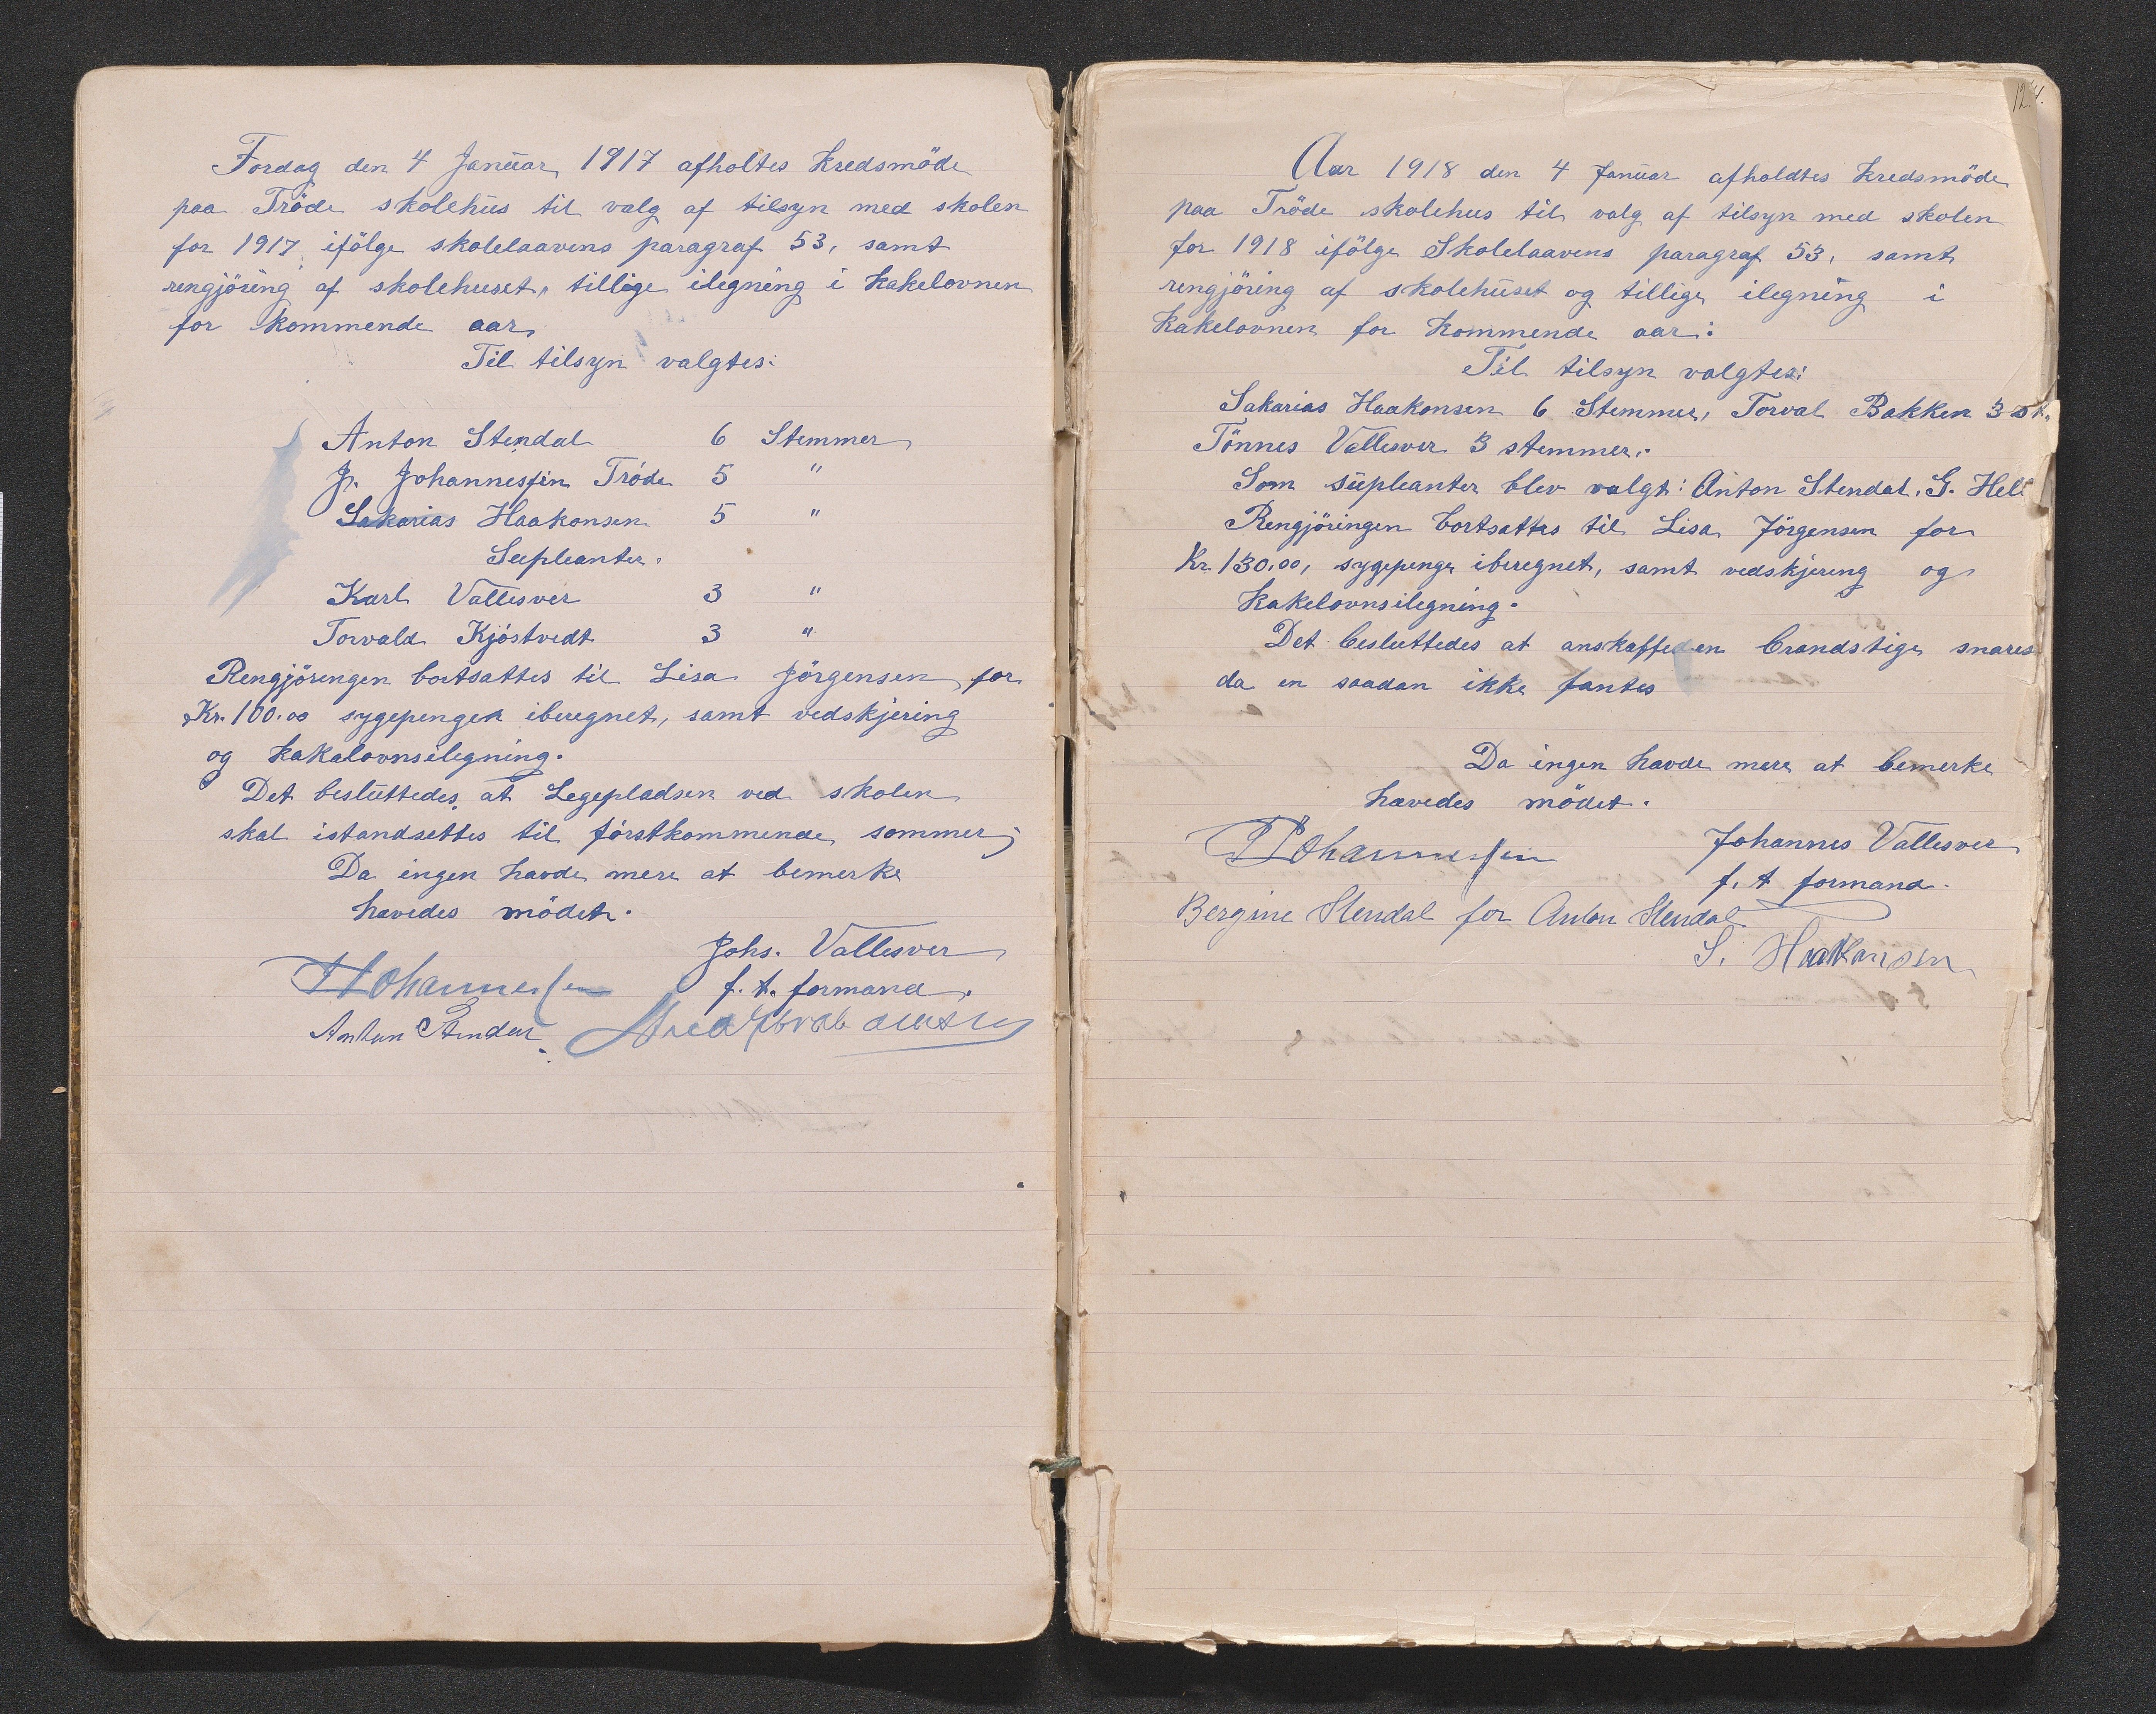 Tordag den 4 Januar 1917 afholtes kredsmöde
paa Tröde skolehus til valg af tilsyn med skolen
for 1917 ifölge skolelaavens paragraf 53, samt
rengjöring af skolehuset, tillige ilegning i kakelovnen
for kommende aar,
Til tilsyn valgtes:
Anton Stendal 6 Stemmer
J. Johannessen Tröde 5 "
Sakarias Haakonsen 5 "
Supleanter.
Karl Vallesver 3 "
Torvald Kjöstvedt 3 "
Rengjöringen bortsattes til Lisa Jörgensen for
Kr. 100.00 sygepenger iberegnet, samt vedskjering
og kakalovnsilegning.
Det besluttedes at Legepladsen ved skolen
skal istandsettes til förstkommende sommer;
Da ingen havde mere at bemerke
hævedes mödet.
Johs. Vallesver
Johannessen f. t. formand.
Anton Stendal
124.
Aar 1918 den 4 Januar afholdtes kredsmöde
paa Tröde skolehus til valg af tilsyn med skolen
for 1918 ifölge Skolelaavens paragraf 53, samt
rengjöring af skolehuset og tillige ilegning i
kakelovnen for kommende aar:
Til tilsyn valgtes:
Sakarias Haakonsen 6 Stemmer, Torval Bakken 3 st.
Tönnes Vallesver 3 stemmer.
Som supleanter blev valgt: Anton Stendal, G. Hell
Rengjöringen bortsattes til Lisa Jörgensen for
Kr. 130,00, sygepenge iberegnet, samt vedskjering og
kakelovnsilegning.
Det besluttedes at anskaffe en brandstige snares
da en saadan ikke fantes
Da ingen havde mere at bemerke
hævedes mödet.
Johannessen Johannes Vallesver
f. t formand.
Bergine Stendal for Anton Stendal
S. Haakonsen